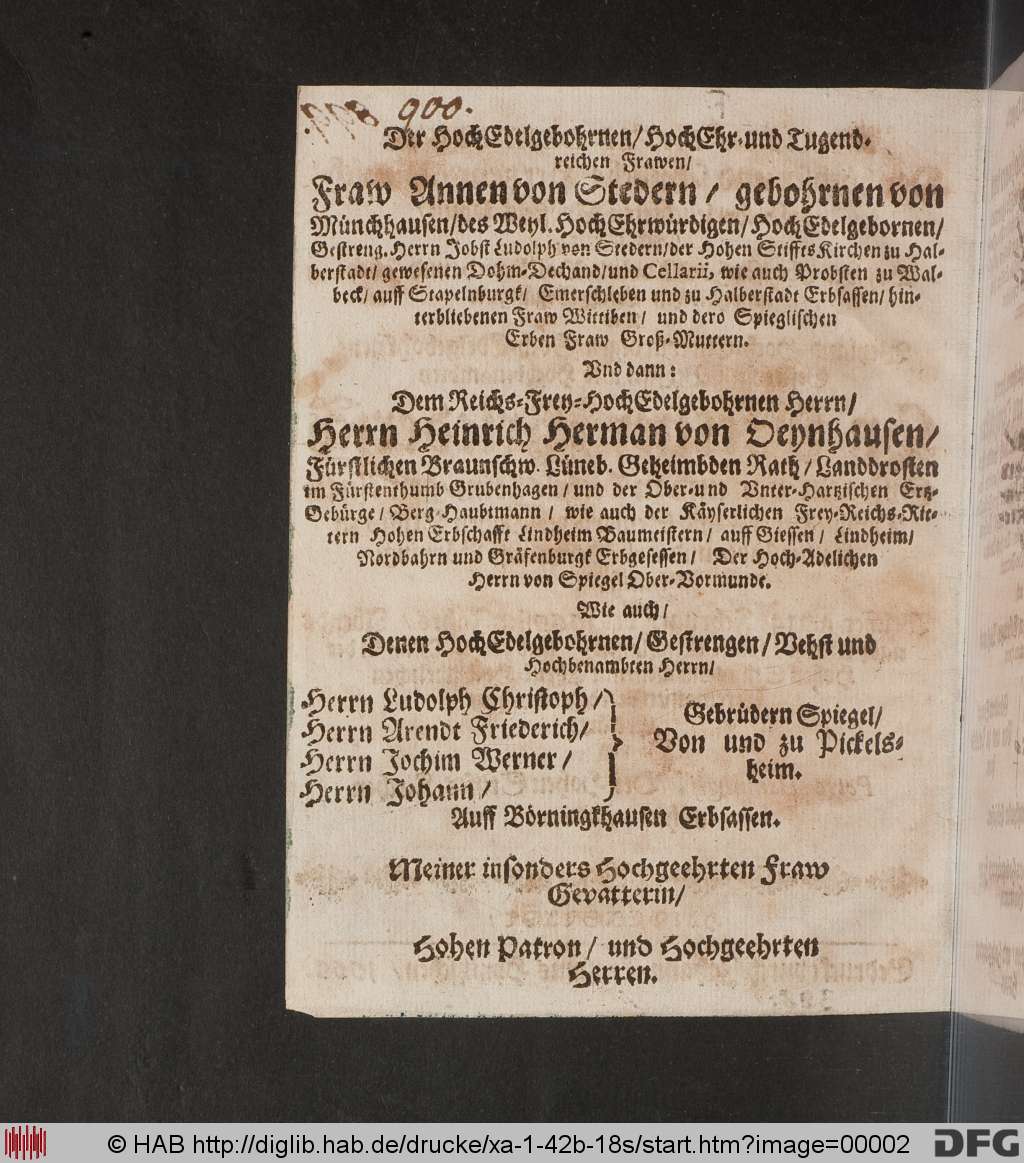 900.
Der HochEdelgebohrnen/ HochEhr-und Tugend-
reichen Frawen/
Fraw Annen von Stedern/ gebohrnen von
Münchhausen/des Weyl. HochEhrwürdigen/HochEdelgebornen/
Gestreng. Herrn Jobst Ludolph von Stedern/der Hohen StifftsKirchen zu Hal-
berstadt/ gewesenen Dohm-Dechand/und Cellarii, wie auch Probsten zu Wal-
beck/ auff Stapelnburgk/ Emerschleben und zu Halberstadt Erbsassen/ hin-
terbliebenen Fraw Wittiben/ und dero Spieglischen
Erben Fraw Groß-Muttern.
Vnd dann:
Dem Reichs-Frey-HochEdelgebohrnen Herrn/
Herrn Heinrich Herman von Oeynhausen/
Fürstlichen Braunschw. Lüneb. Geheimbden Rath/ Landdrosten
im Fürstenthumb Grubenhagen/ und der Ober-und Vnter-Hartzischen Ertz-
Gebürge/ Berg-Haubtmann/ wie auch der Käyserlichen Frey-Reichs-Rit-
tern Hohen Erbschafft Lindheim Baumeistern/ auff Giessen/ Lindheim/
Nordbahrn und Gräfenburgk Erbgesessen/ Der Hoch-Adelichen
Herrn von Spiegel Ober-Vormunde.
Wie auch/
Denen HochEdelgebohrnen/ Gestrengen/ Vehst und
Hochbenambten Herrn/
Herrn Ludolph Christoph/
Herrn Arendt Friederich/
Herrn Jochim Werner/
Herrn Johann/
Gebrüdern Spiegel/
Von und zu Pickels-
heim.
Auff Börningkhausen Erbsassen.
Meiner insonders Hochgeehrten Fraw
Gevatterin/
Hohen Patron/ und Hochgeehrten
Herren.
© HAB http://diglib.hab.de/drucke/xa-1-42b-18s/start.htm?image=00002
DFG